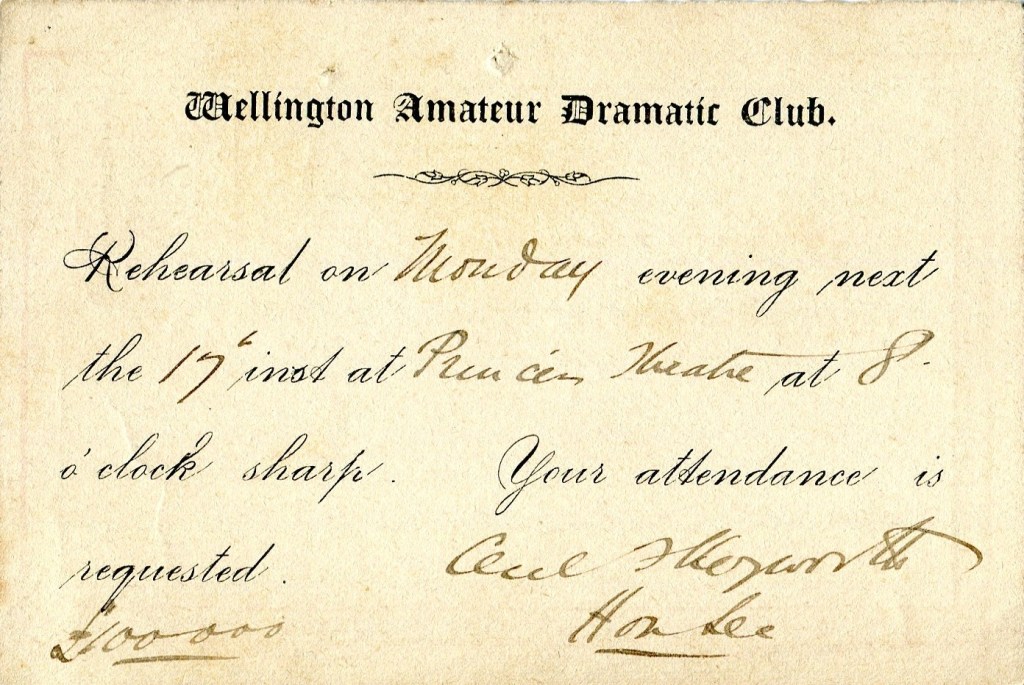 Wellington Amateur Dramatic Club.
Rehearsal on Monday evening next
the 17th inst at Princess Theatre at 8
o'clock sharp. Your attendance is
requested. Heyworth
£100000 Hon Sec